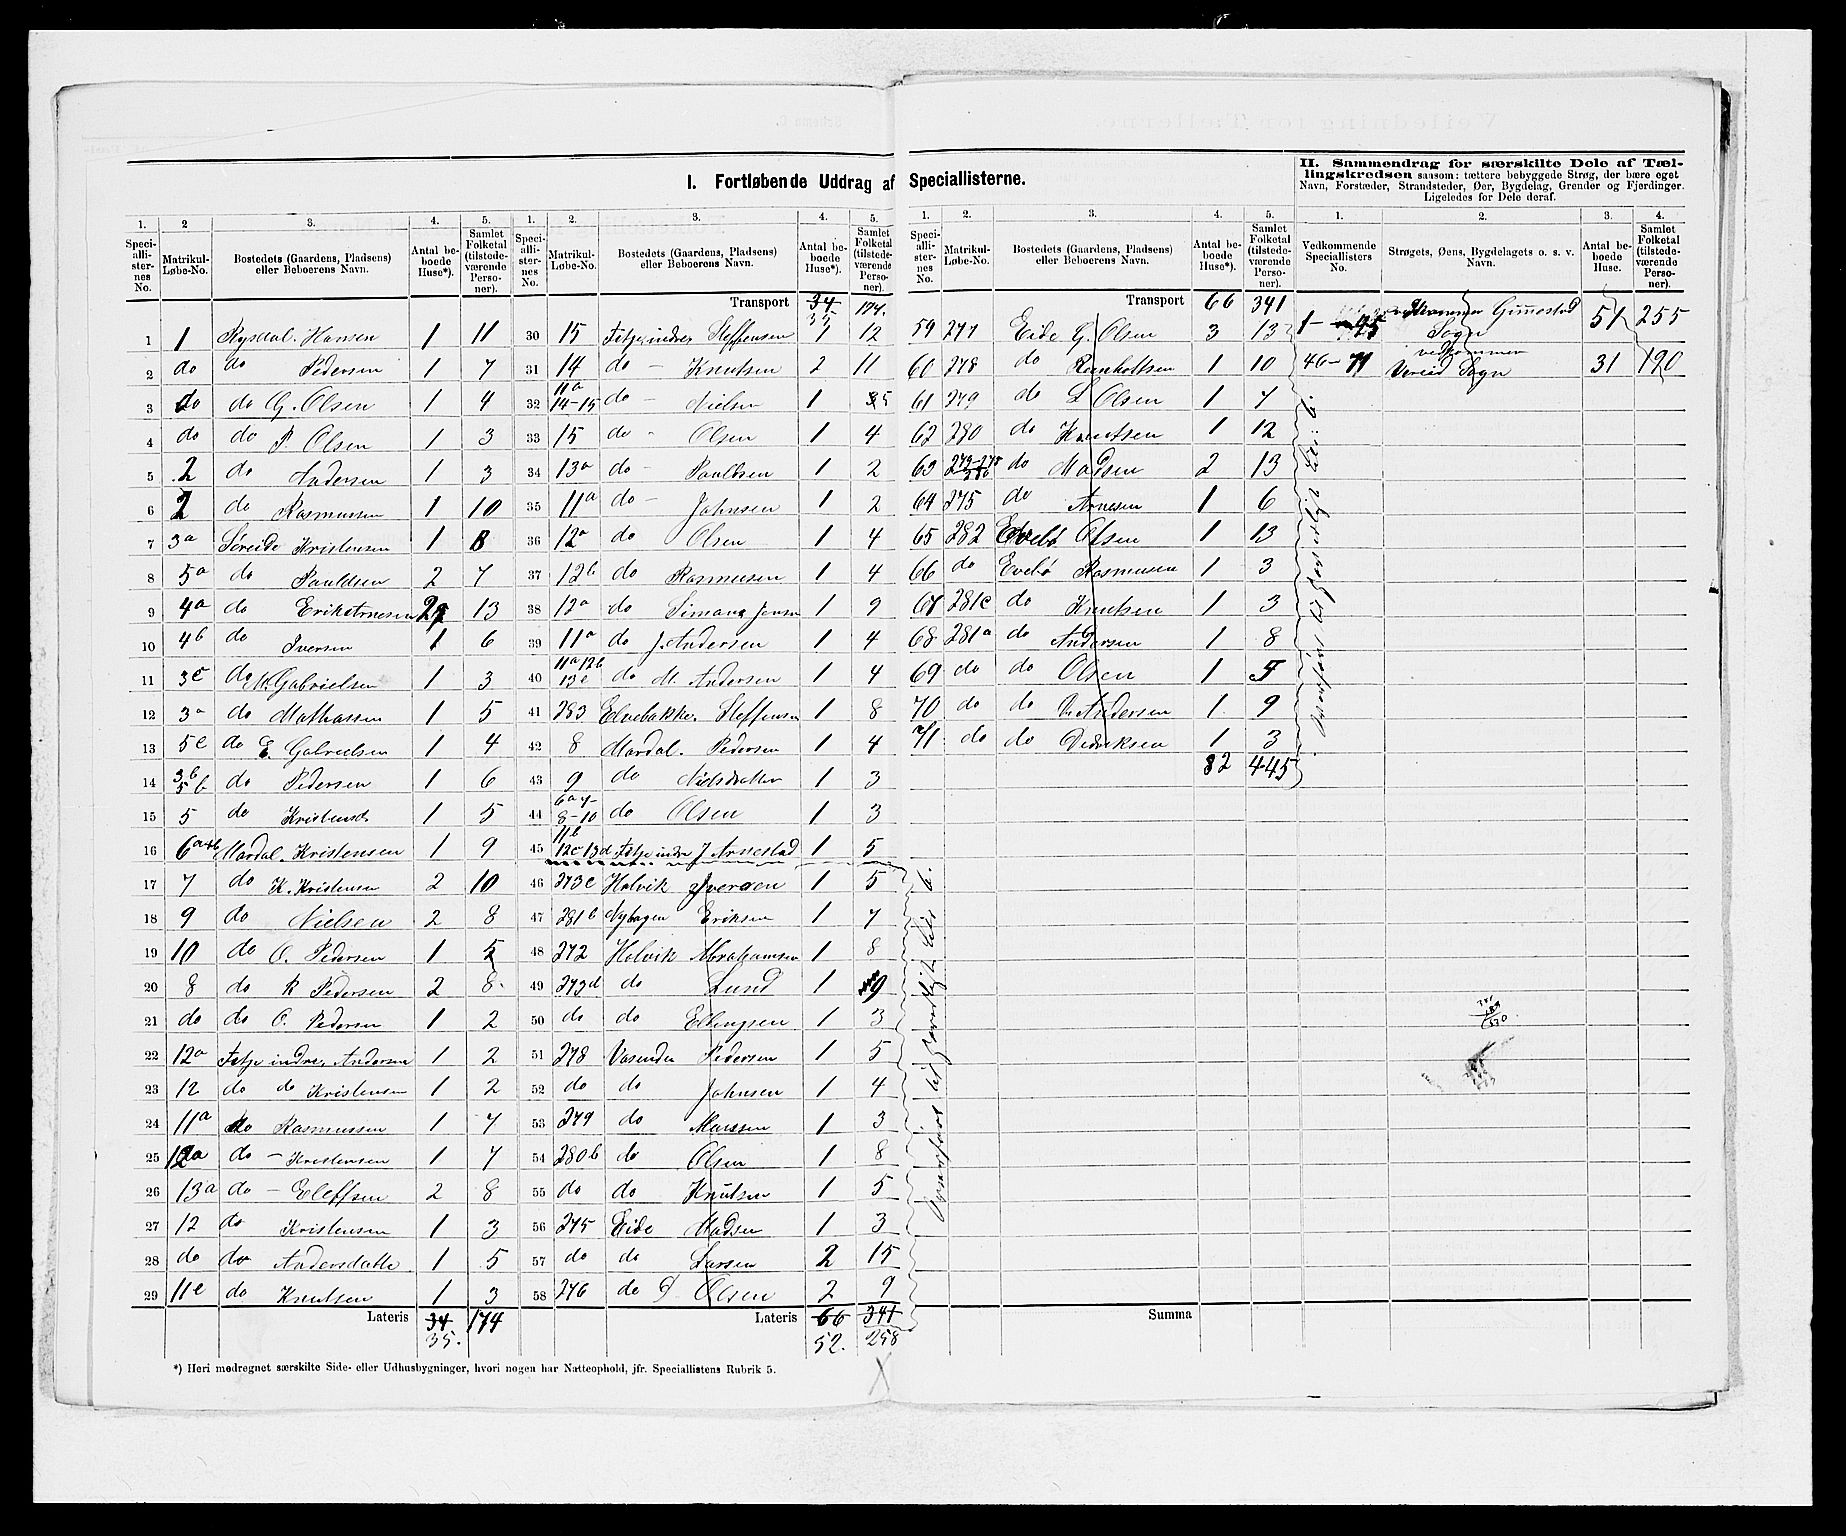 I. Fortløbende Uddrag af Speciallisterne.
II. Sammendrag for særskilte Dele af Tællingskredsen saasom: tættere bebyggede Strøg, der bære eget
Navn, Forstæder, Strandsteder, Øer, Bygdelag, Grender og Fjerdinger.
Ligeledes for Dele deraf.
1. 2 3. 4. 5. 1. 2. 3. 4. 5. 1. 2. 3. 4. 5. 1. 2. 3. 4.
Speciallisternes No. Matrikul-Løbe-No. Bostedets (Gaardens, Pladsens) eller Beboerens Navn. Antal beboede Huse*). Samlet Folketal (tilstedeværende Personer).
Speciallisternes No. Matrikul-Løbe-No. Bostedets (Gaardens, Pladsens) eller Beboerens Navn. Antal beboede Huse*). Samlet Folketal (tilstedeværende Personer).
Speciallisternes No. Matrikul-Løbe-No. Bostedets (Gaardens, Pladsens) eller Beboerens Navn. Antal beboede Huse*). Samlet Folketal (tilstedeværende Personer).
Vedkommende Speciallisters No. Strøgets, Øens, Bygdelagets o. s. v. Navn. Antal beboede Huse. Samlet Folketal (tilstedeværende Personer).
1 1 Rysdal. Hansen 1 11
2 do do Pedersen 1 7
3 do do G. Olsen 1 4
4 do do P. Olsen 1 3
5 2 do Andersen 1 3
6 2 do Rasmussen 1 10
7 3a Søreide Kristensen 1 8
8 5a do Pauldsen 2 7
9 4a do Erik Arnesen 2 13
10 4b do Iversen 1 6
11 3c do M. Gabrielsen 1 3
12 3a do Mathassen 1 5
13 5c do E. Gabrielsen 1 4
14 3b 5b do Pedersen 1 6
15 5 do Kristensd. 1 5
16 6a+b Mardal. Kristensen 1 9
17 7 do K. Kristensen 2 10
18 9 do Nielsen 2 8
19 10 do O. Pedersen 1 5
20 8 do R Pedersen 2 8
21 do do O. Pedersen 1 2
22 12a Fitje indre, Andersen 1 2
23 12 do do Kristensen 1 2
24 11a do Rasmussen 1 7
25 12a do - Kristensen 1 7
26 13a do - Eleffsen 2 8
27 12 do Kristensen 1 3
28 do do Andersdatte 1 5
29 11e do Knutsen 1 3
Lateris 34 174
35.
Transport 34 174.
35
30 15 Fitje indre Steffensen 1 12
31 14 do - Knutsen 2 11
32 11a 14-15 do - Nielsen 1 5
33 15 do - Olsen 1 4
34 13a do - Paulsen 1 2
35 11a do - Johnsen 1 2
36 12a do Olsen 1 4
37 12b do Rasmusen 1 4
38 12a do Simon Jensen 1 9
39 11a do J. Andersen 1 4
40 11a 12b 13c do M. Andersen 1 4
41 283 Elvebakke. Steffensen 1 8
42 8 Mardal. Pedersen 1 4
43 9 do Nielsdatter 1 3
44 6a 7- 8-10 do Olsen 1 3
45 11b 12c 13d Fitje indre J Arnestad 1 5
46 273c Holvik Iversen 1 5
47 281b Nybagen Eriksen 1 7
48 272 Holvik Abrahamsen 1 8
49 273d do Lund 1 9
50 do do Ellingsen 1 3
51 278 Vasenden Pedersen 1 5
52 do do Johnsen 1 4
53 279 do Monssen 1 3
54 280b do Olsen 1 8
55 do do Knutsen 1 5
56 275 Eide Madsen 1 3
57 do do Larsen 2 15
58 276 do P. Olsen 2 9
Lateris 66 341
52. 258
Transport 66 341
59 277 Eide G. Olsen 3 13
60 278 do Reinholtsen 1 10
61 279 do L Olsen 1 7
62 280 do Knutsen 1 12
63 do Madsen 2 13
64 275 do Arnesen 1 6
65 282 Evebø Olsen 1 13
66 do Evebø Rasmusen 1 3
67 281c do Knutsen 1 3
68 281a do Andersen 1 8
69 do do Olsen 1 5
70 do do Andersen 1 9
71 do do Dedriksen 1 3
82 445
Summa
1 - 45 vedkommer Gimmestad Sogn 51 255
46 - 71 vedkommer Vereid Sogn 31 190
*) Heri medregnet særskilte Side- eller Udhusbygninger, hvori nogen har Natteophold, jfr. Speciallistens Rubrik 5.